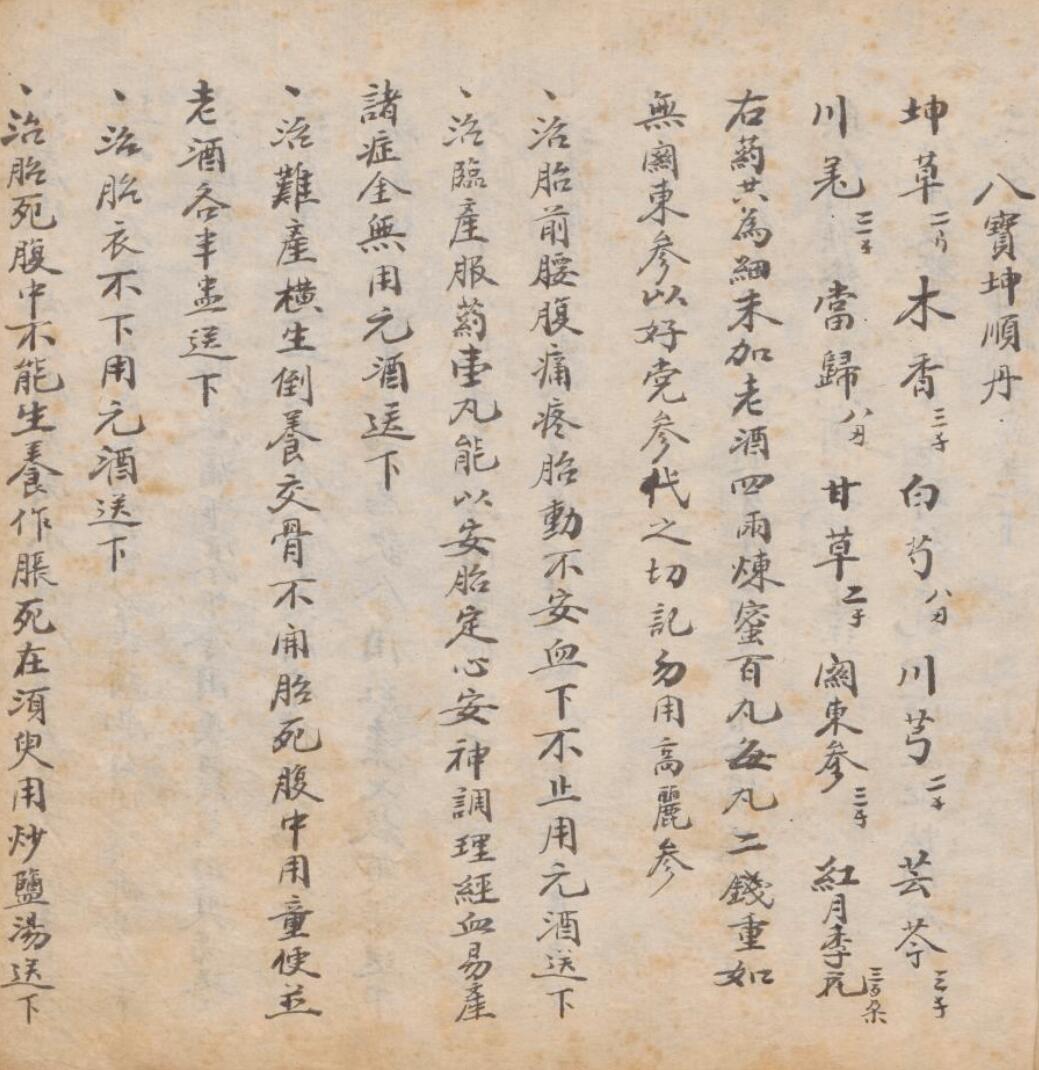 八寶坤順丹
坤草二斤 木香三千 白芍八刃 川芎二千 芸苓三千
川羌三千 當歸八刃 甘草二千 關東參三千 紅月季花三百朵
右药共為細末加老酒四兩煉蜜百丸每丸二錢重如
無關東參以好党參代之切記勿用高麗參
丶治胎前腰腹痛疼胎動不安血下不止用元酒送下
丶治臨產服药壹丸能以安胎定心安神調理經血易產
諸症全無用元酒送下
丶治難產橫生倒養交骨不開胎死腹中用童便並
老酒各半盅送下
丶治胎衣不下用元酒送下
丶治胎死腹中不能生養作脹死在須臾用炒鹽湯送下